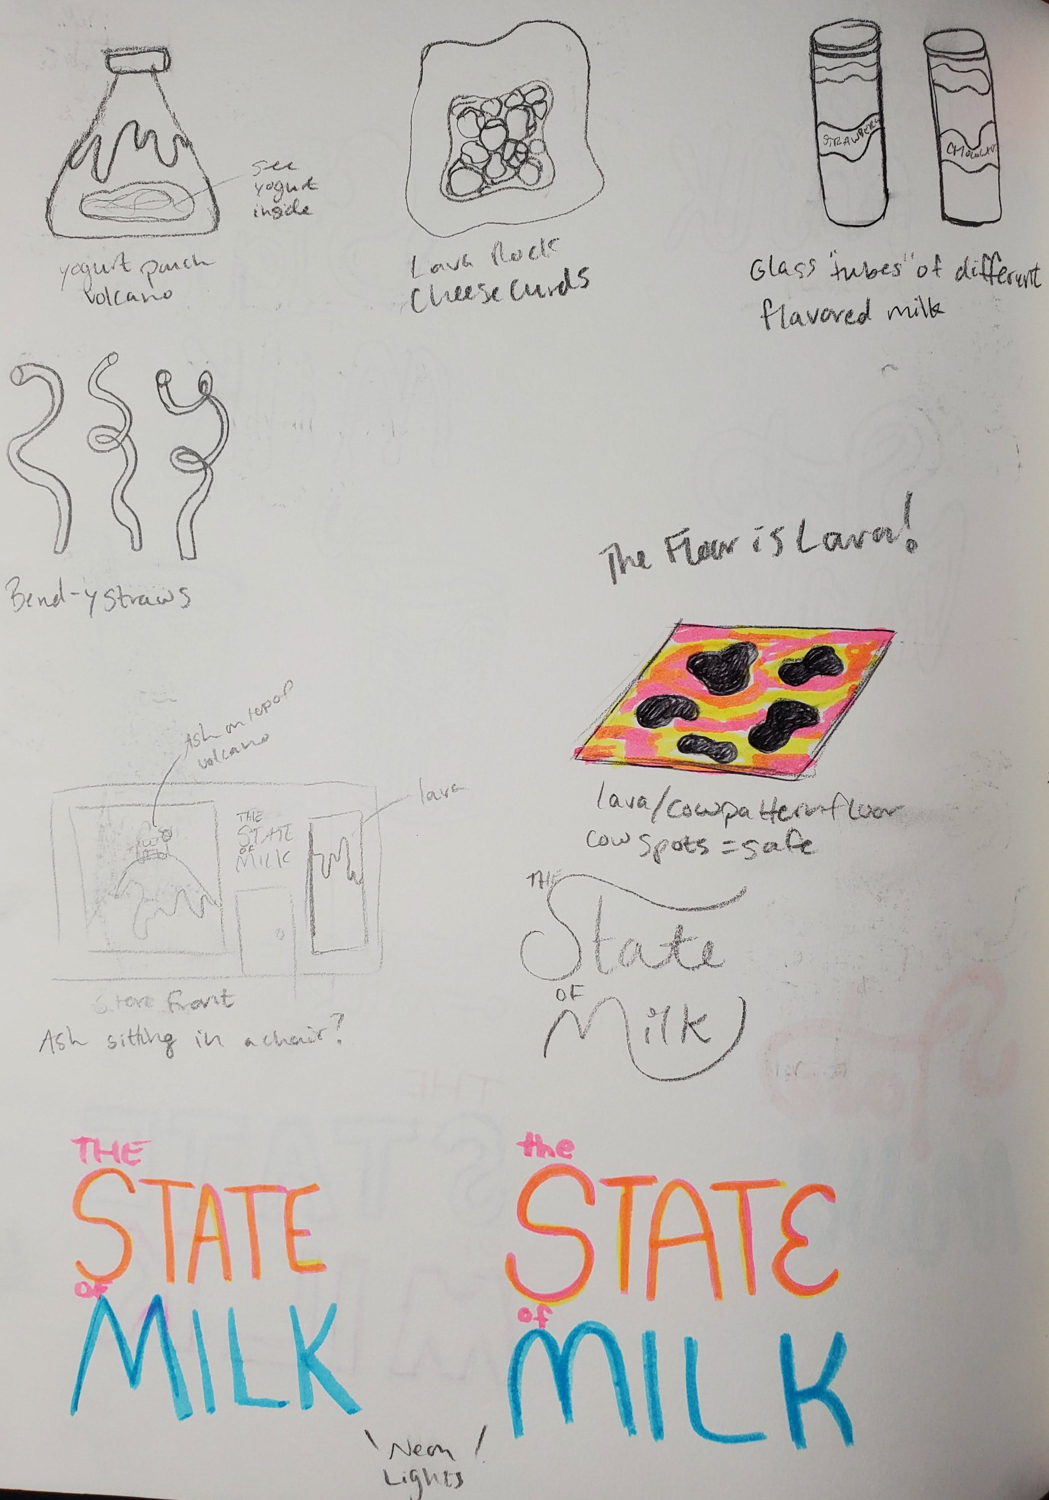 see
yogurt
inside
yogurt pouch
volcano
Lava Rock
Cheese Curds
STRAWBERRY
CHOCOLATE
Glass "tubes" of different
flavored milk
Bend-y straws
The Floor is Lava!
lava/cow pattern floor
cow spots = safe
Ash on top of
volcano
lava
THE
STATE
OF
MILK
Store Front
Ash sitting in a chair?
THE
State
OF
Milk
THE
STATE
OF
MILK
the
STATE
of
MILK
Neon
Lights